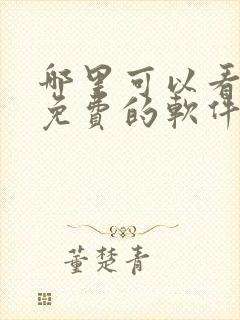 哪里可以看
免費的軟件
董楚青